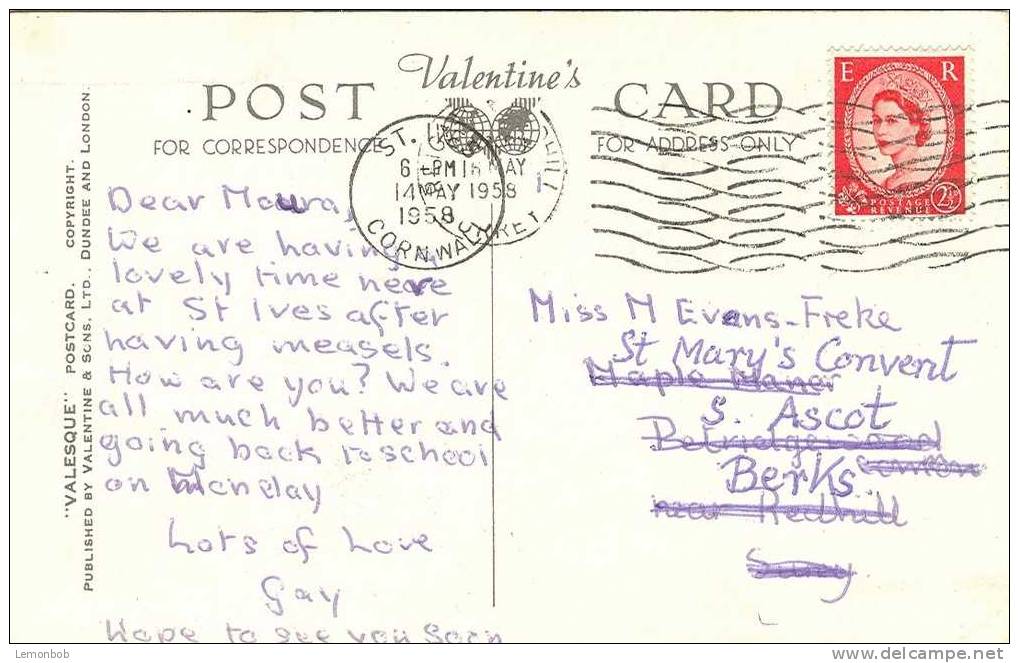 POST Valentine's CARD
FOR CORRESPONDENCE FOR ADDRESS ONLY
E R
POSTAGE
REVENUE
2½
ST. IVES
6 - PM
14 MAY
1958
CORNWALL
MAY
1958
"VALESQUE" POSTCARD. COPYRIGHT.
PUBLISHED BY VALENTINE & SONS, LTD., DUNDEE AND LONDON.
Dear Maura,
We are having a
lovely time here
at St Ives after
having measels.
How are you? We are
all much better and
going back to school
on Monday
Lots of Love
Gay
Hope to see you soon
Miss M Evans-Freke
St Mary's Convent
Maple Manor
S. Ascot
Berks.
near Redhill
Surrey
Lemonbob
delcampe.net